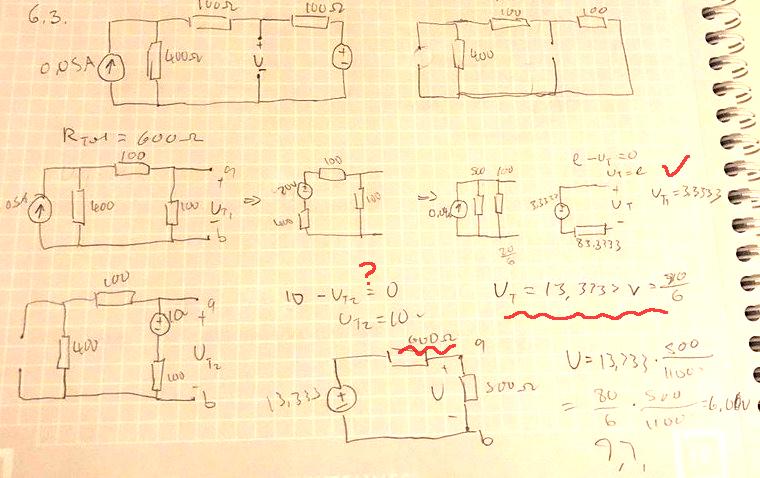 6.3.
100Ω 100Ω
0,05A 400Ω + U -
100 100
400
R_Tot = 600Ω
100
05A 400 100 a + U_T1 - b
⇒ 20V 400 100 100
⇒ 500 100
80/6
e - U_T = 0
U_T = e
U_T1 = 3.3333
3.3333 + U_T -
83.3333
100
400 10 100 a + U_T2 - b
?
10 - U_T2 = 0
U_T2 = 10
U_T = 13,3333 V = 80/6
600Ω
13,333 + U - 500Ω a b
U = 13,333 · 500/1100
= 80/6 · 500/1100 = 6,06V
?,?,